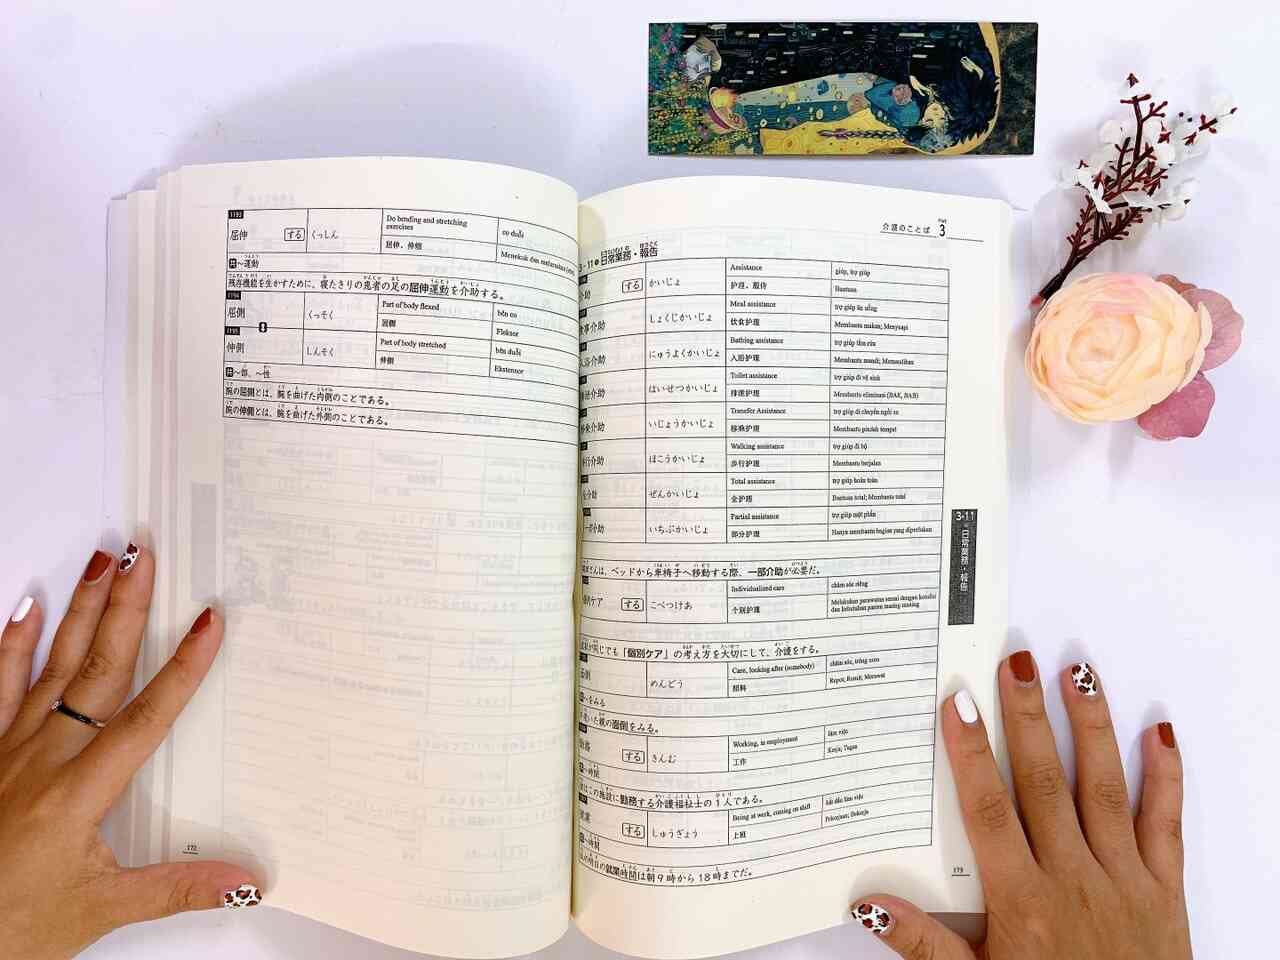 1193
屈伸 する くっしん Do bending and stretching exercises co duỗi
屈伸、伸缩 Menekuk dan meluruskan (otot)
～運動
残存機能を生かすために、寝たきりの患者の足の屈伸運動を介助する。
1194
屈側 くっそく Part of body flexed bên co
屈侧 Fleksor
1195
伸側 しんそく Part of body stretched bên duỗi
伸侧 Ekstensor
～部、～性
腕の屈側とは、腕を曲げた内側のことである。
腕の伸側とは、腕を曲げた外側のことである。
172
介護のことば 3
3-11 日常業務・報告
介助 する かいじょ Assistance giúp, trợ giúp
护理、服侍 Bantuan
食事介助 しょくじかいじょ Meal assistance trợ giúp ăn uống
饮食护理 Membantu makan; Menyuapi
入浴介助 にゅうよくかいじょ Bathing assistance trợ giúp tắm rửa
入浴护理 Membantu mandi; Memandikan
介助 はいせつかいじょ Toilet assistance trợ giúp đi vệ sinh
排泄护理 Membantu eliminasi (BAK, BAB)
移乗介助 いじょうかいじょ Transfer Assistance trợ giúp di chuyển ngồi xe
移乘护理 Membantu pindah tempat
歩行介助 ほこうかいじょ Walking assistance trợ giúp đi bộ
步行护理 Membantu berjalan
全介助 ぜんかいじょ Total assistance trợ giúp hoàn toàn
全护理 Bantuan total; Membantu total
一部介助 いちぶかいじょ Partial assistance trợ giúp một phần
部分护理 Hanya membantu bagian yang diperlukan
さんは、ベッドから車椅子へ移動する際、一部介助が必要だ。
個別ケア する こべつけあ Individualized care chăm sóc riêng
个别护理 Melakukan perawatan sesuai dengan kondisi dan kebutuhan pasien masing-masing
が同じでも「個別ケア」の考え方を大切にして、介護をする。
面倒 めんどう Care, looking after (somebody) chăm sóc, trông nom
照料 Repot; Rumit; Merawat
～をみる
老いた親の面倒をみる。
勤務 する きんむ Working, in employment làm việc
工作 Kerja; Tugas
～時間
はこの施設に勤務する介護福祉士の1人である。
就業 する しゅうぎょう Being at work, coming on shift bắt đầu làm việc
上班 Pekerjaan; Bekerja
～時間
の明日の就業時間は朝9時から18時までだ。
3-11 日常業務・報告
173